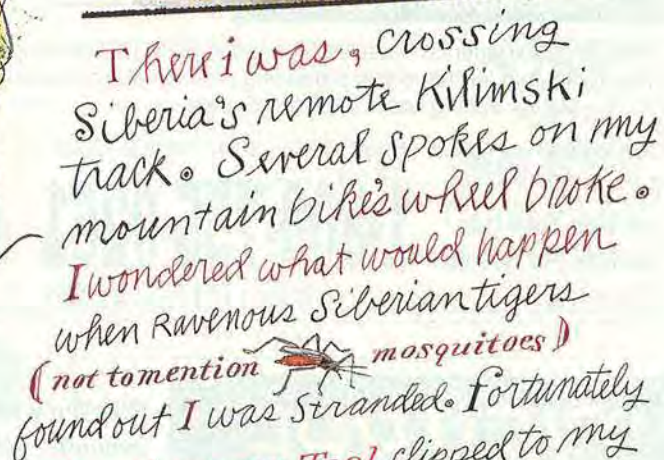 There i was, crossing
Siberia's remote Kilimski
track. Several Spokes on my
mountain bike's wheel broke.
I wondered what would happen
when Ravenous Siberian tigers
(not to mention mosquitoes)
found out I was Stranded. Fortunately
Tool clipped to my